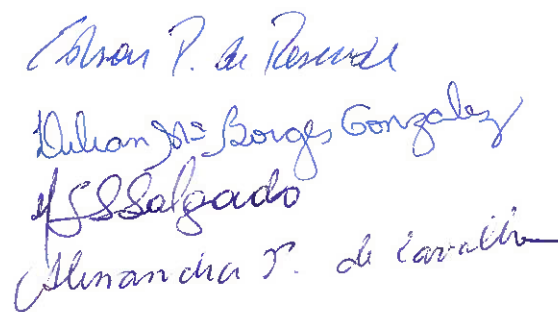 Edson P. de Resende
Dulian Mª Borges Gonzalez
Salgado
Alessandra P. de Carvalho